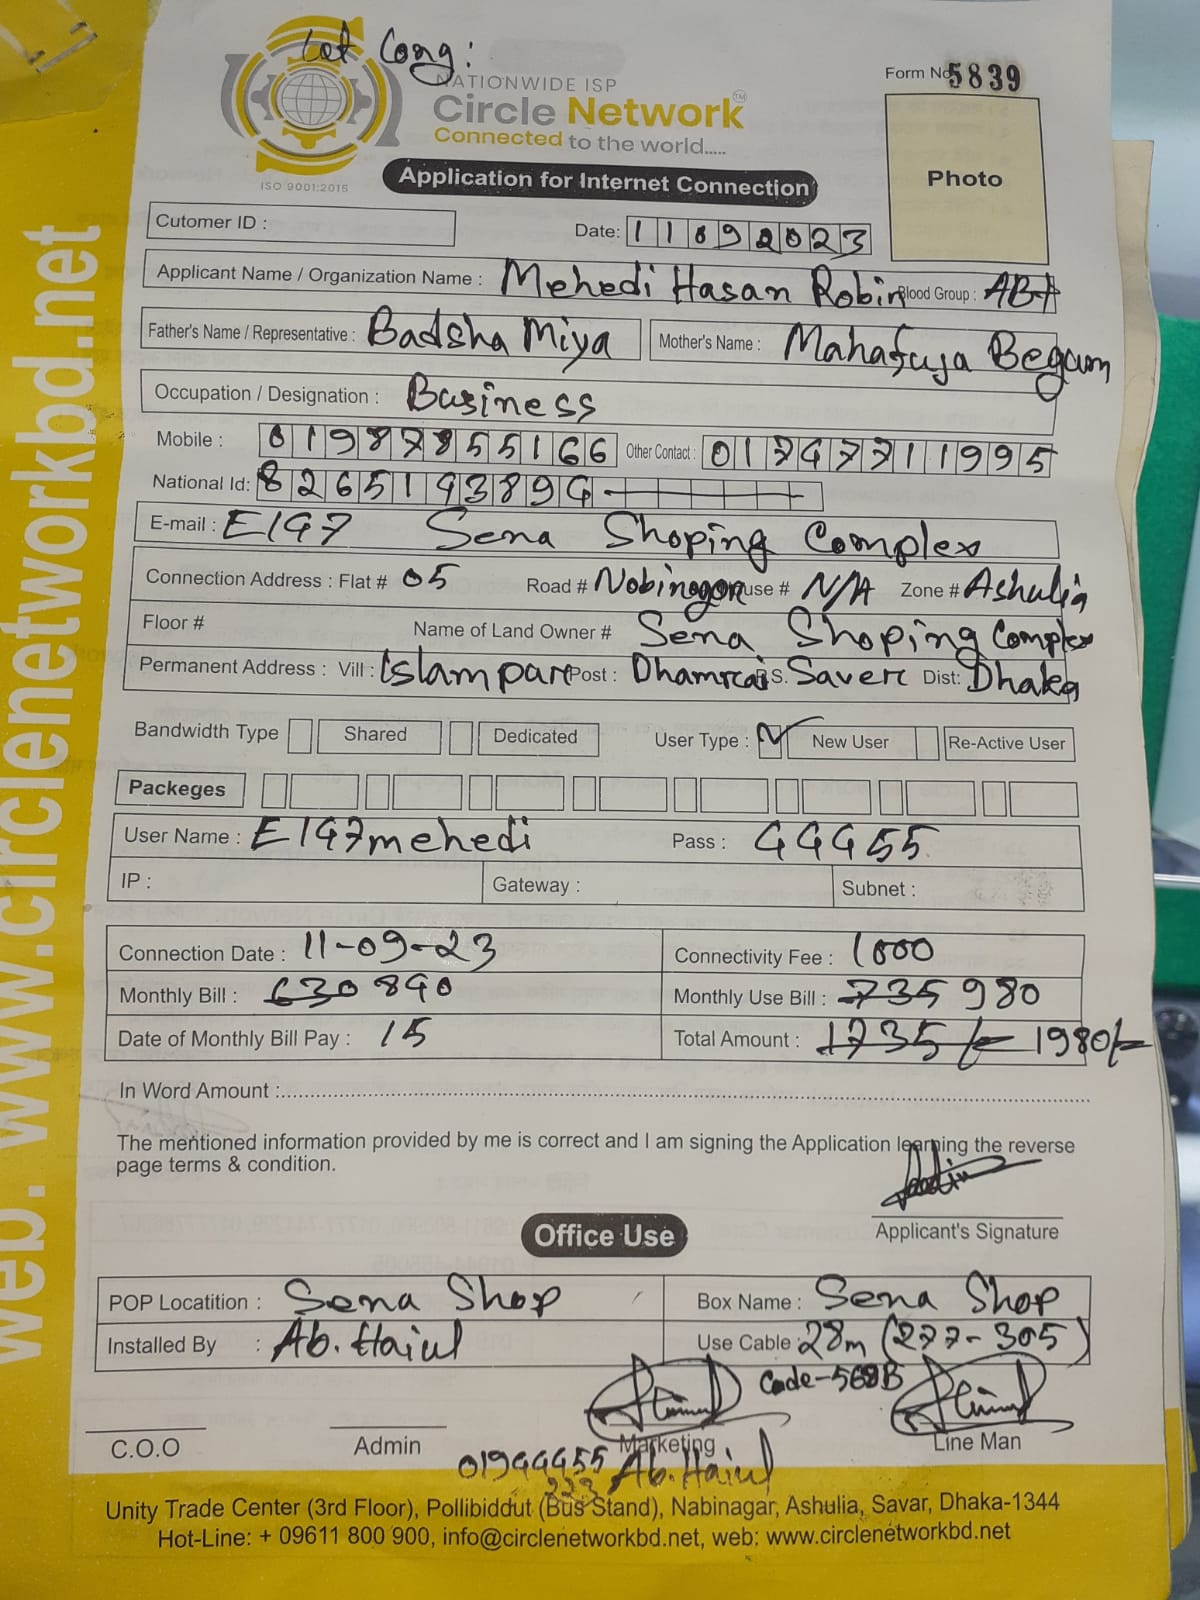 Let Cong:
NATIONWIDE ISP
Circle Network TM
Connected to the world.....
ISO 9001:2015
Form No 5839
Photo
Application for Internet Connection
Cutomer ID :
Date: 11092023
Applicant Name / Organization Name : Mehedi Hasan Robin Blood Group : AB+
Father's Name / Representative : Badsha Miya Mother's Name : Mahafuja Begum
Occupation / Designation : Business
Mobile : 01987855166 Other Contact : 01747711995
National Id: 8265193894
E-mail : E147 Sena Shoping Complex
Connection Address : Flat # 05 Road # Nobinogor use # N/A Zone # Ashulia
Floor # Name of Land Owner # Sena Shoping Complex
Permanent Address : Vill : Islampur Post : Dhamrai S. Saver Dist: Dhaka
Bandwidth Type Shared Dedicated User Type : New User Re-Active User
Packeges
User Name : E147mehedi Pass : 44455
IP : Gateway : Subnet :
Connection Date : 11-09-23 Connectivity Fee : 1000
Monthly Bill : 630 840 Monthly Use Bill : 735 980
Date of Monthly Bill Pay : 15 Total Amount : 1735/- 1980/-
In Word Amount :
The mentioned information provided by me is correct and I am signing the Application learning the reverse
page terms & condition.
Applicant's Signature
Office Use
POP Locatition : Sena Shop Box Name : Sena Shop
Installed By : Ab. Haiul Use Cable : 28m (277-305)
Code-568B
C.O.O Admin Marketing Line Man
01944455 Ab. Haiul
223
Unity Trade Center (3rd Floor), Pollibiddut (Bus Stand), Nabinagar, Ashulia, Savar, Dhaka-1344
Hot-Line: + 09611 800 900, info@circlenetworkbd.net, web: www.circlenetworkbd.net
web: www.circlenetworkbd.net